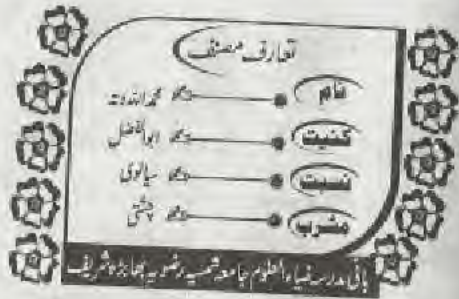 تعارف مصنف
نام محمد اللہ دتہ
کنیت ابوالفضل
نسبت سیالوی
مشرب چشتی
بانی مدرسہ ضیاء العلوم جامعہ شمسیہ رضویہ شریف